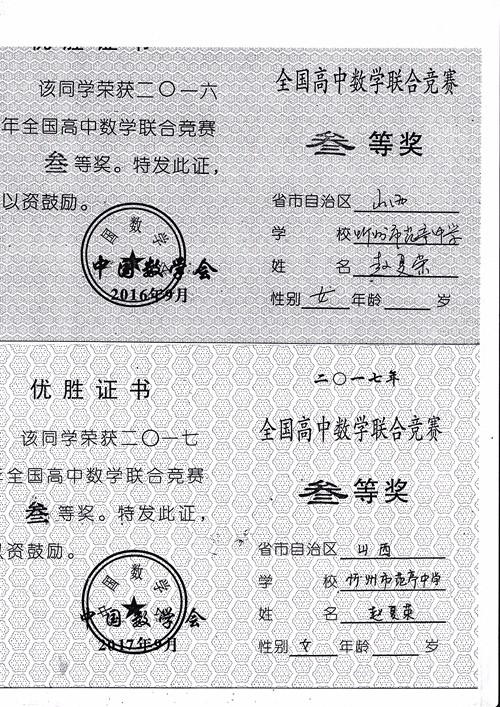 优胜证书
该同学荣获二〇一六
年全国高中数学联合竞赛
叁等奖。特发此证，
以资鼓励。
中国数学会
中国数学会
2016年9月
全国高中数学联合竞赛
叁等奖
省市自治区 山西
学 校 忻州市范亭中学
姓 名 赵夏荣
性别 女 年龄 岁
优胜证书
该同学荣获二〇一七
年全国高中数学联合竞赛
叁等奖。特发此证，
以资鼓励。
中国数学会
中国数学会
2017年9月
二〇一七年
全国高中数学联合竞赛
叁等奖
省市自治区 山西
学 校 忻州市范亭中学
姓 名 赵夏荣
性别 女 年龄 岁